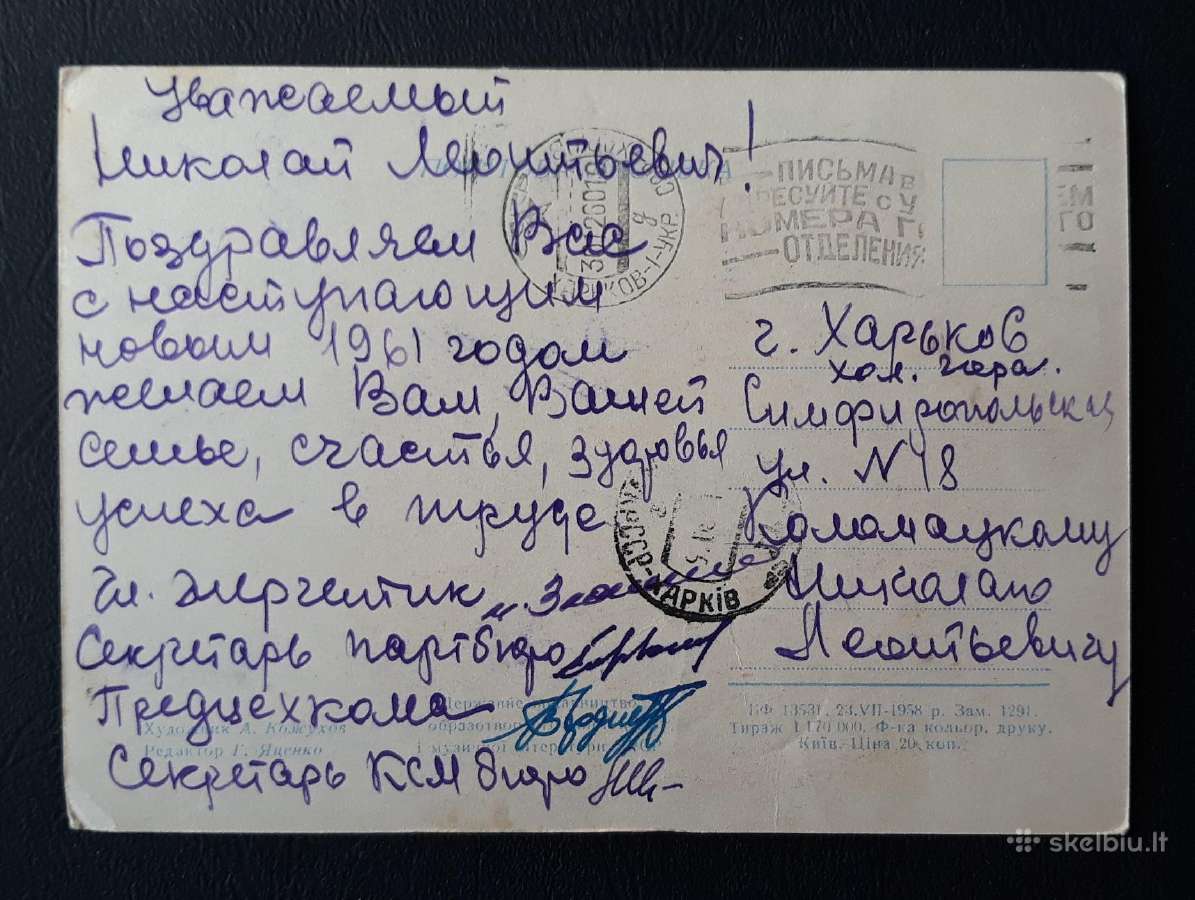 Уважаемый
Николай Леонтьевич!
Поздравляем Вас
с наступающим
новым 1961 годом
желаем Вам, Вашей
семье, счастья, здоровья
успеха в труде
Гл. энергетик
Секретарь партбюро
Предцехкома
Секретарь КСМ бюро
ПИСЬМА В
РЕСУЙТЕ С У
НОМЕРА Г
ОТДЕЛЕНИЯ
ЕМ
ГО
г. Харьков
хол. гора.
Симфиропольская
ул. N 18
Коломацкому
Николаю
Леонтьевичу
ХАРЬКОВ-1-УКР. ССР
УРСР-ХАРКІВ
Художник А. Кожухов
Редактор Г. Яценко
Державне видавництво
образотворчого
і музичної літератури УРСР
БФ 13531. 23.VII-1958 р. Зам. 1291.
Тираж 1 170 000. Ф-ка кольор. друку.
Київ. Ціна 20 коп.
skelbiu.lt